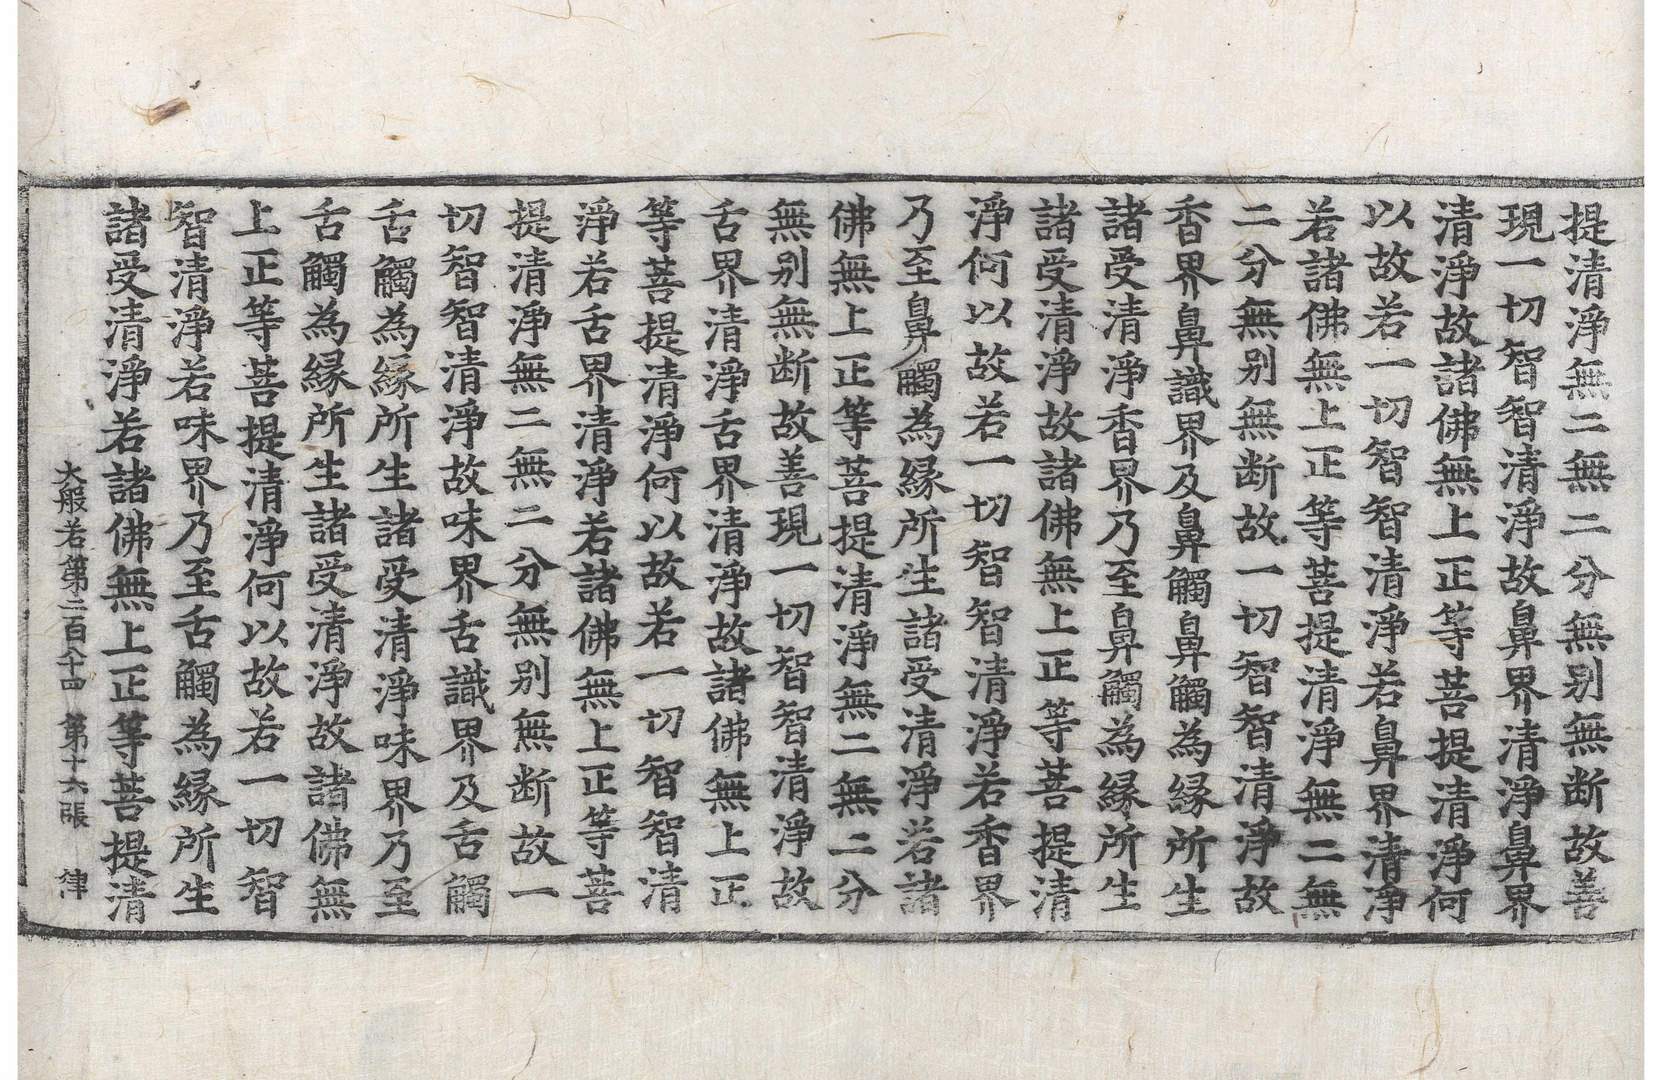 提清淨無二無二分無別無断故善
現一切智智清淨故鼻界清淨鼻界
清淨故諸佛無上正等菩提清淨何
以故若一切智智清淨若鼻界清淨
若諸佛無上正等菩提清淨無二無
二分無別無断故一切智智清淨故
香界鼻識界及鼻觸鼻觸為縁所生
諸受清淨香界乃至鼻觸為縁所生
諸受清淨故諸佛無上正等菩提清
淨何以故若一切智智清淨若香界
乃至鼻觸為縁所生諸受清淨若諸
佛無上正等菩提清淨無二無二分
無別無断故善現一切智智清淨故
舌界清淨舌界清淨故諸佛無上正
等菩提清淨何以故若一切智智清
淨若舌界清淨若諸佛無上正等菩
提清淨無二無二分無別無断故一
切智智清淨故味界舌識界及舌觸
舌觸為縁所生諸受清淨味界乃至
舌觸為縁所生諸受清淨故諸佛無
上正等菩提清淨何以故若一切智
智清淨若味界乃至舌觸為縁所生
諸受清淨若諸佛無上正等菩提清
大般若第二百八十四 第十六張 律